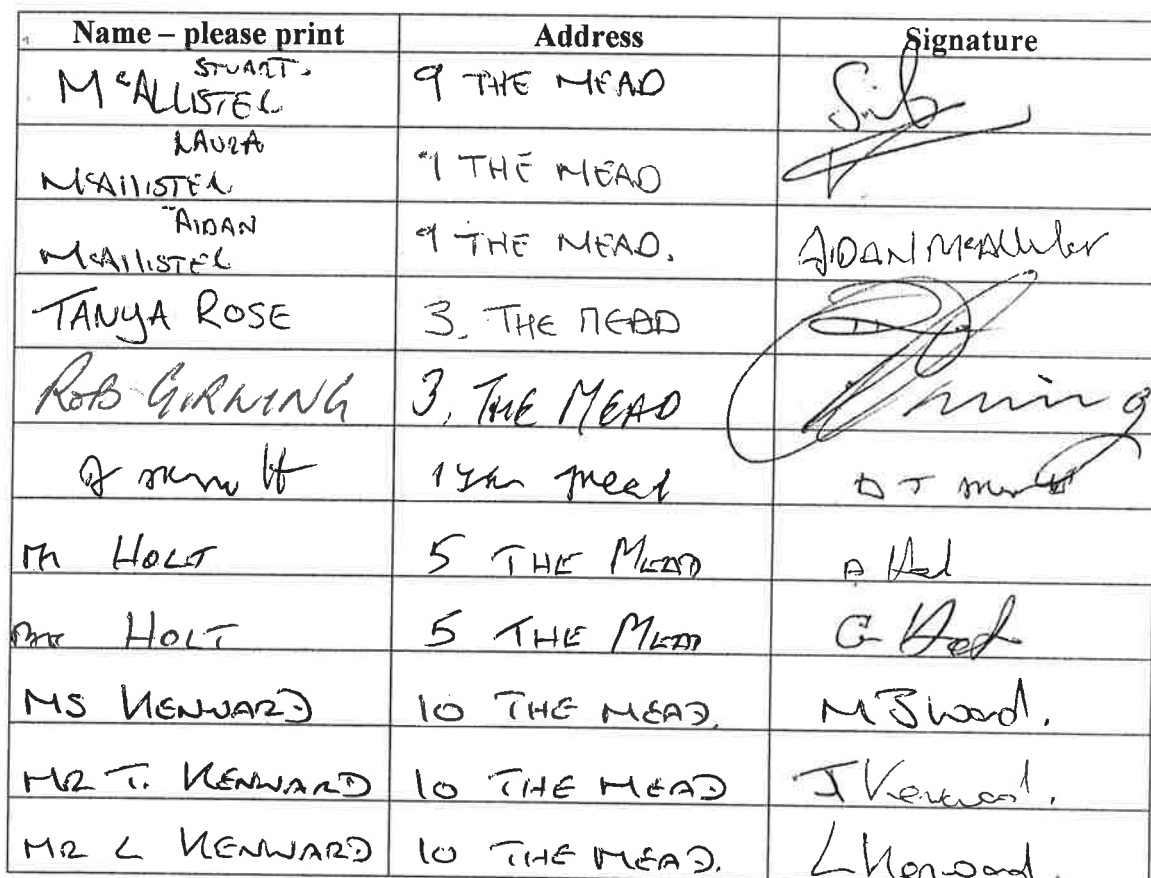 Name – please print Address Signature
STUART.
McALLISTER 9 THE MEAD
LAURA
McAllISTER 9 THE MEAD
AIDAN
McAllISTER 9 THE MEAD. AIDAN McAllister
TANYA ROSE 3. THE MEAD
ROB GIRNING 3. THE MEAD
D T
HOLT 5 THE MEAD
HOLT 5 THE MEAD G Holt
MS KENWARD 10 THE MEAD.
MR T. KENWARD 10 THE MEAD Kenward.
MR L KENWARD 10 THE MEAD. L Kenward.